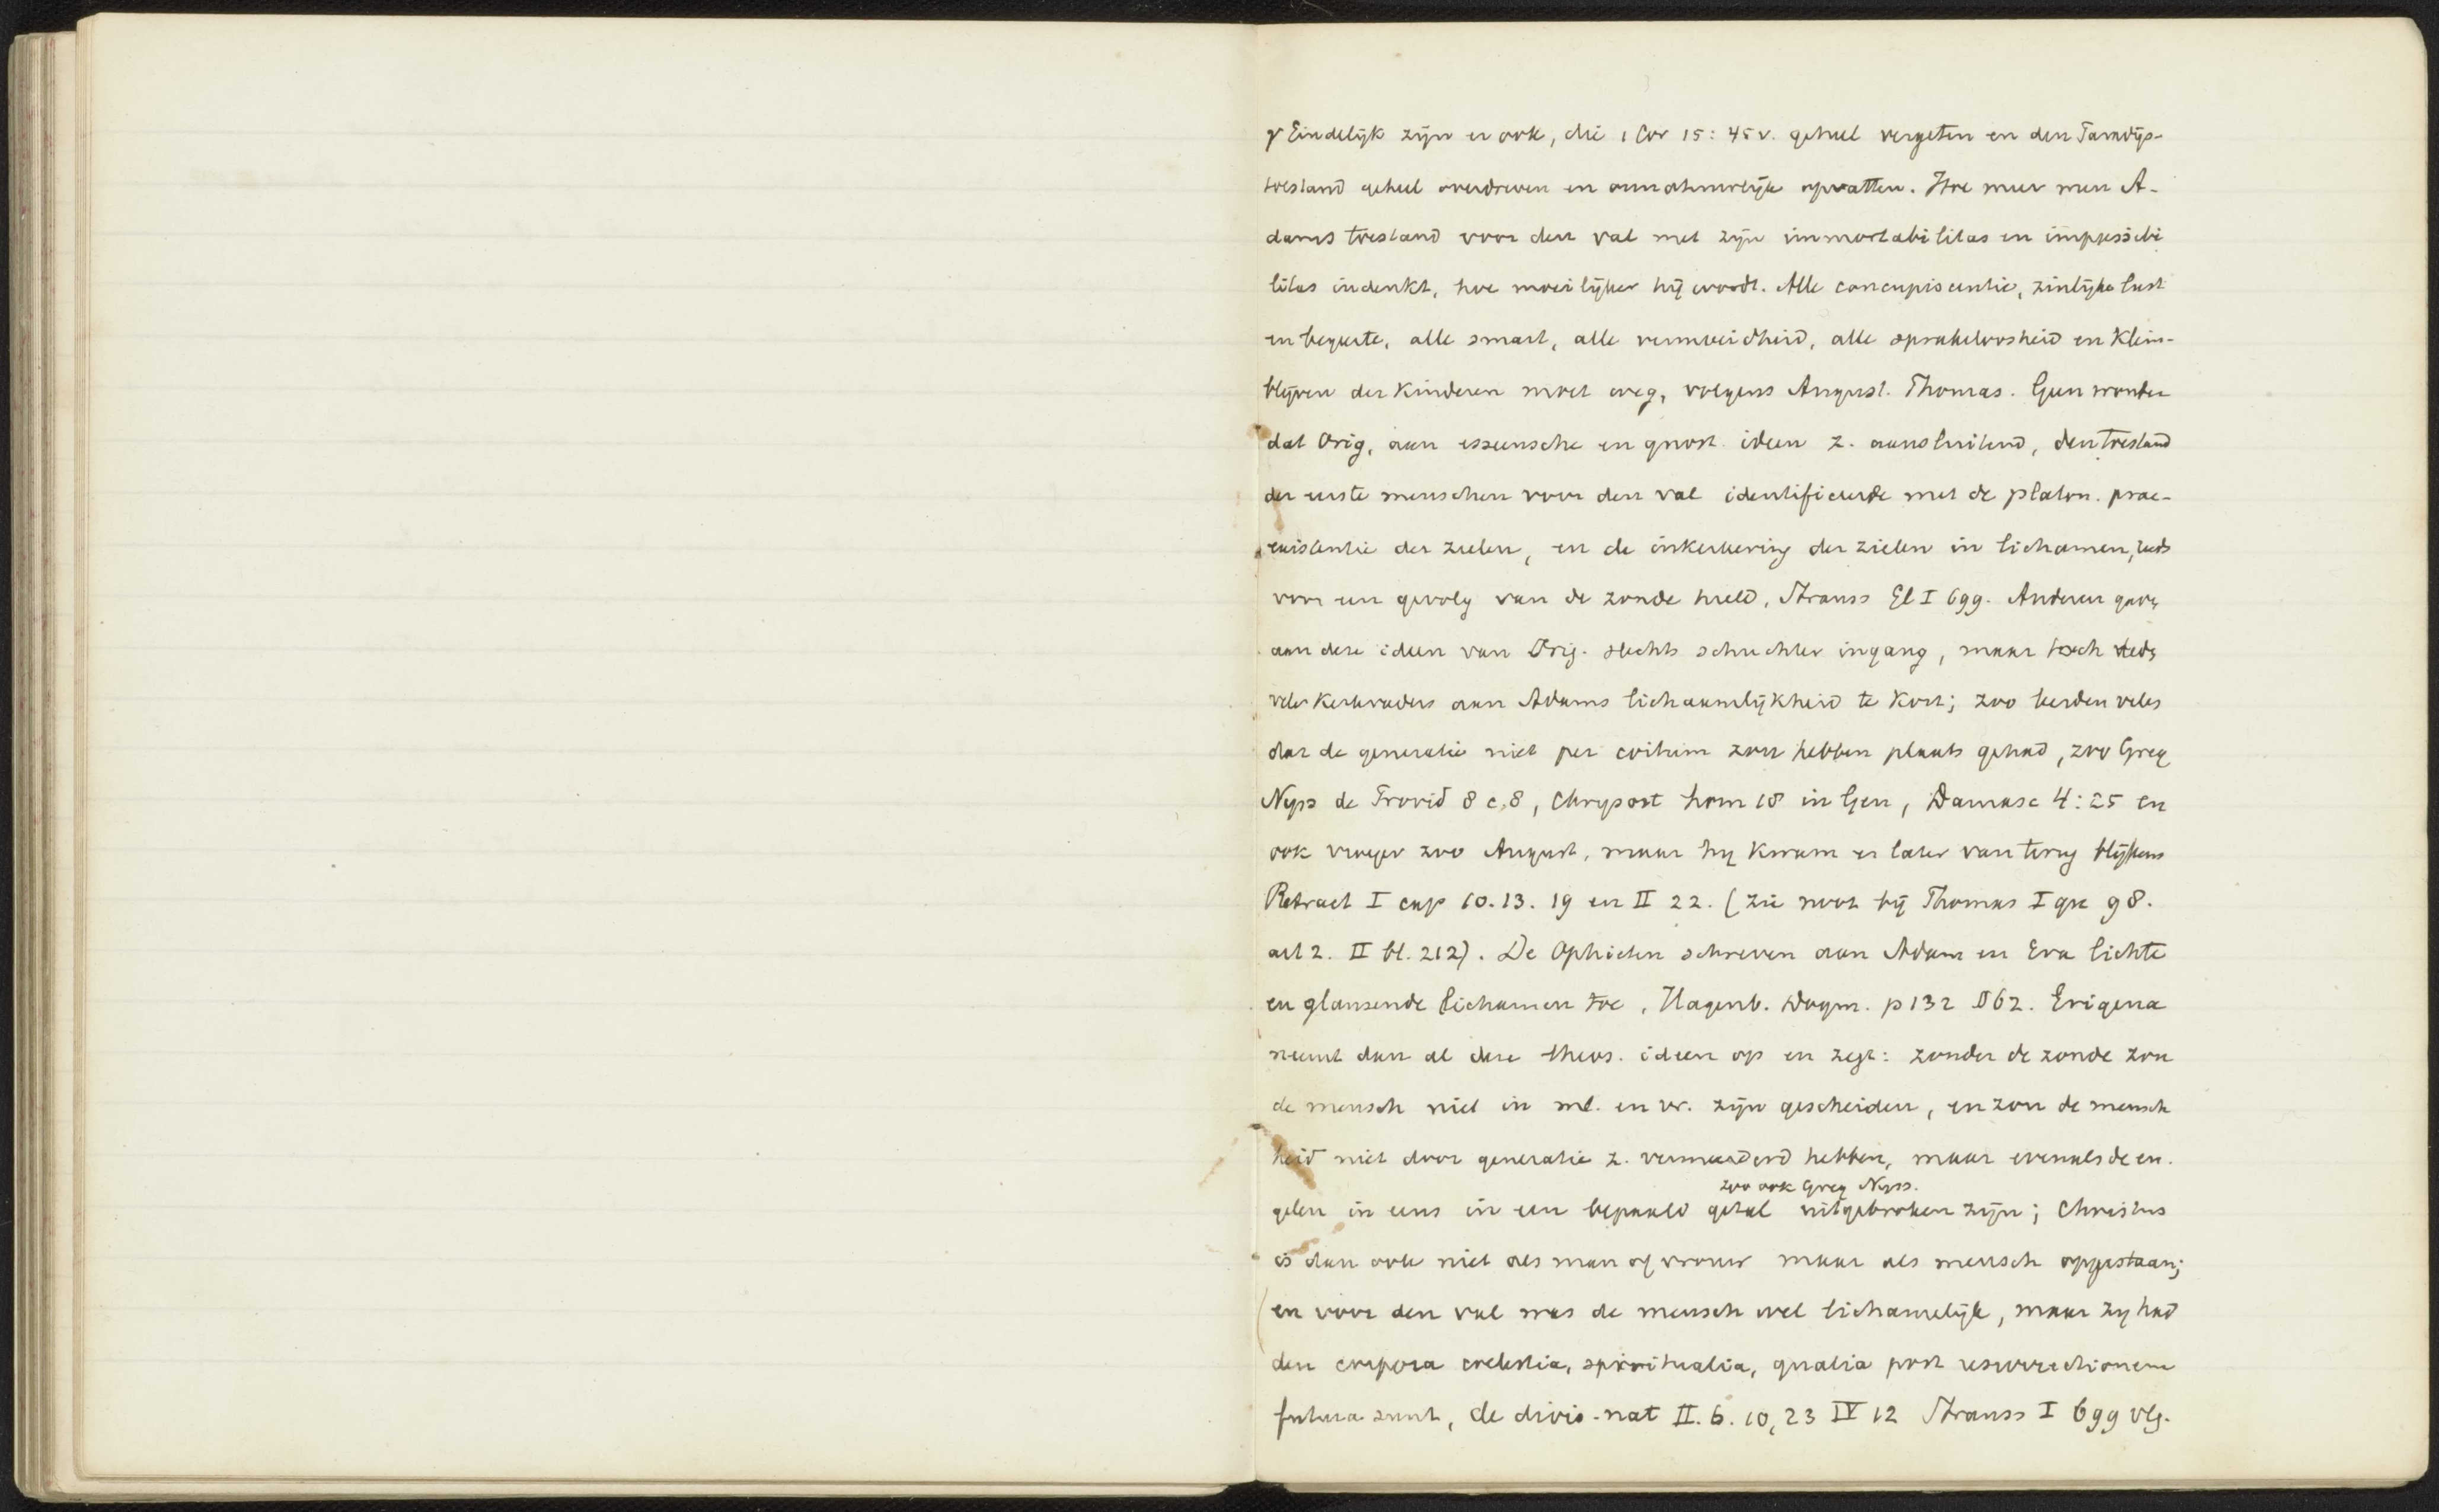 γ Eindelijk zijn er ook, die 1 Cor 15:45 v. geheel vergeten en den Paradijs-
toestand geheel overdreven en onnatuurlijk opvatten. Hoe meer men A-
dams toestand voor den val met zijn immortabilitas en impassibi
litas indenkt, hoe moeilijker hij wordt. Alle concupiscentie, zinlijke lust
en begeerte, alle smart, alle vermoeidheid, alle sprakeloosheid en klein-
blijven der kinderen moet weg, volgens August. Thomas. Geen wonder
dat Orig, aan esseensche en gnost. ideen z. aansluitend, den toestand
der eerste menschen voor den val identificeerde met de platon. prae-
existentie der zielen, en de inkerkering der zielen in lichamen, reeds
voor een gevolg van de zonde hield, Strauss Gl I 699. Anderen gaven
aan deze ideen van Orig. slechts schuchter ingang, maar toch deden
vele kerkvaders aan Adams lichaamlijkheid te kort; zoo leerden velen
dat de generatie niet per coitum zou hebben plaats gehad, zoo Greg
Nyss de Provid 8 c. 8, Chrysost hom 18 in Gen, Damasc 4:25 en
ook vroeger zoo August, maar hij kwam er later van terug blijkens
Retract I cap 10. 13. 19 en II 22. (zie noot bij Thomas I qu 98.
art 2. II bl. 212). De Ophieten schreven aan Adam en Eva lichte
en glanzende lichamen toe, Hagenb. Dogm. p 132 § 62. Erigena
neemt dan al deze theos. ideen op en zegt: zonder de zonde zou
de mensch niet in ml. en vr. zijn gescheiden, en zou de mensch
heid niet door generatie z. vermeerderd hebben, maar evenals de en-
zoo ook Greg Nyss.
gelen in eens in een bepaald getal uitgebroken zijn; Christus
is dan ook niet als man of vrouw maar als mensch opgestaan;
en voor den val was de mensch wel lichamelijk, maar zij had
den corpora coelestia, spiritualia, qualia post resurrectionem
futura sunt, de divis. nat II. 6. 10, 23 IV 12 Strauss I 699 vlg.